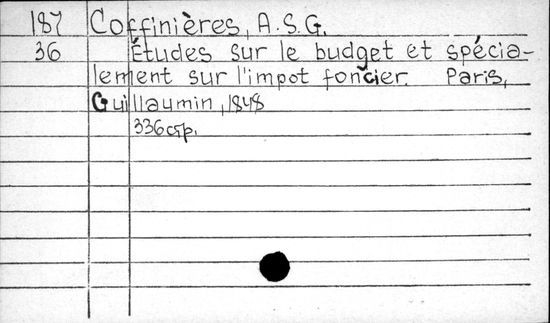 187 Coffinières, A.S.G.
36 Études sur le budget et spécia-
lement sur l'impot foncier. Paris,
Guillaumin, 1848
336стр.